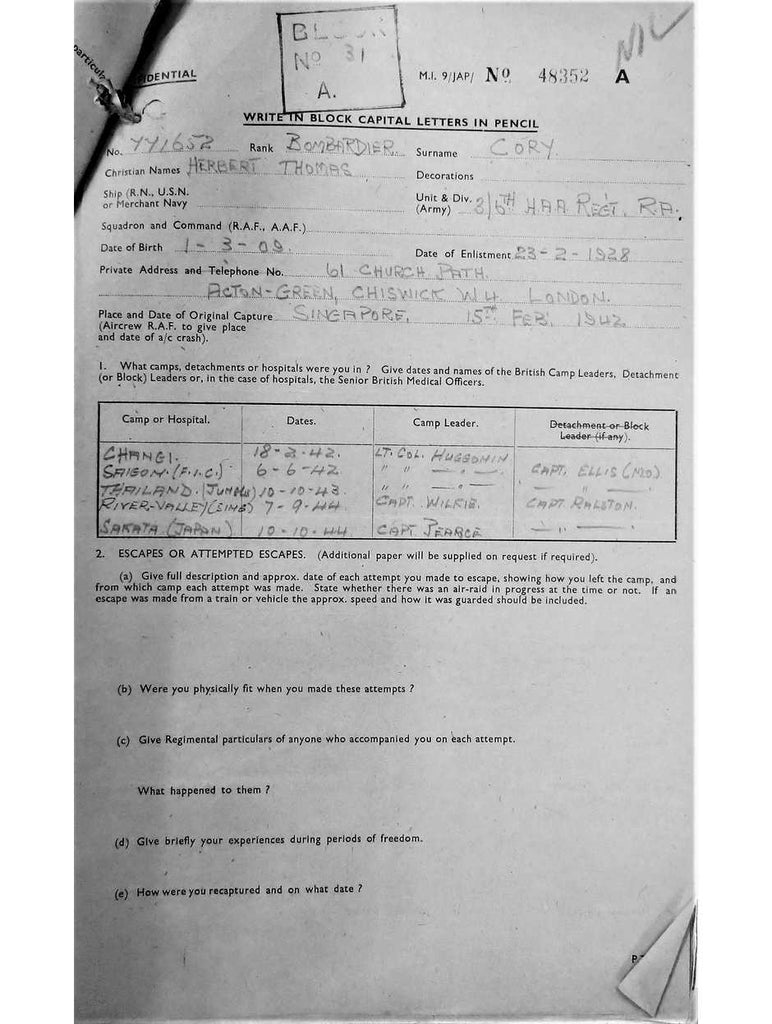 particul
BLOCK
Nº 31
A.
NIL
IDENTIAL
M.I. 9/JAP/ Nº 48352 A
WRITE IN BLOCK CAPITAL LETTERS IN PENCIL
No. 771652 Rank BOMBARDIER Surname CORY.
Christian Names HERBERT THOMAS Decorations
Ship (R.N., U.S.N. or Merchant Navy
Unit & Div. (Army) 3/6TH H.A.A REGT. R.A.
Squadron and Command (R.A.F., A.A.F.)
Date of Birth 1-3-09. Date of Enlistment 23-2-1928
Private Address and Telephone No. 61 CHURCH PATH.
ACTON-GREEN, CHISWICK W4 LONDON.
Place and Date of Original Capture SINGAPORE, 15TH FEB. 1942
(Aircrew R.A.F. to give place
and date of a/c crash).
1. What camps, detachments or hospitals were you in ? Give dates and names of the British Camp Leaders, Detachment
(or Block) Leaders or, in the case of hospitals, the Senior British Medical Officers.
Camp or Hospital. Dates. Camp Leader. Detachment or Block
Leader (if any).
CHANGI. 18-2-42. LT. COL. HUGGONIN
SAIGON. (F.I.C.) 6-6-42 " " — " — CAPT. ELLIS
THAILAND. (JUNGLE) 10-10-43. " " — " — — " —
RIVER-VALLEY (SING) 7-9-44 CAPT. WILKIE. CAPT. RALSTON.
SAKATA (JAPAN) 10-10-44 CAPT PEARCE — " —
2. ESCAPES OR ATTEMPTED ESCAPES. (Additional paper will be supplied on request if required).
(a) Give full description and approx. date of each attempt you made to escape, showing how you left the camp, and
from which camp each attempt was made. State whether there was an air-raid in progress at the time or not. If an
escape was made from a train or vehicle the approx. speed and how it was guarded should be included.
(b) Were you physically fit when you made these attempts ?
(c) Give Regimental particulars of anyone who accompanied you on each attempt.
What happened to them ?
(d) Give briefly your experiences during periods of freedom.
(e) How were you recaptured and on what date ?